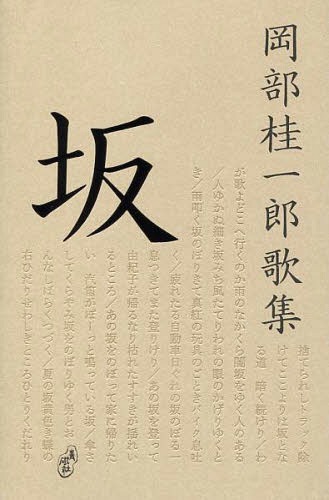 岡部桂一郎歌集
坂
捨てられしトラック除
けてここよりは坂とな
る道 暗く続けり／わ
が歌よどこへ行くのか雨のなかくら闇坂をゆく人のある
／人ゆかぬ細き坂みち風たてりわれの眼のかげりゆくと
き／雨叩く坂のぼりきて真紅の玩具のごときバイク息吐
く／疲れたる自動車日ぐれの坂のぼる一
息つきてまた登りけり／あの坂を登って
由紀子が帰るなり枯れたすすきが揺れい
るところ／あの坂をのぼって家に帰りた
い 汽笛がぼーっと鳴っている坂／傘さ
してくらやみ坂をのぼりゆく男とお
んなしばらくつづく／夏の坂黄色き蝶の
右ひだりせわしきこころひとりくだれり